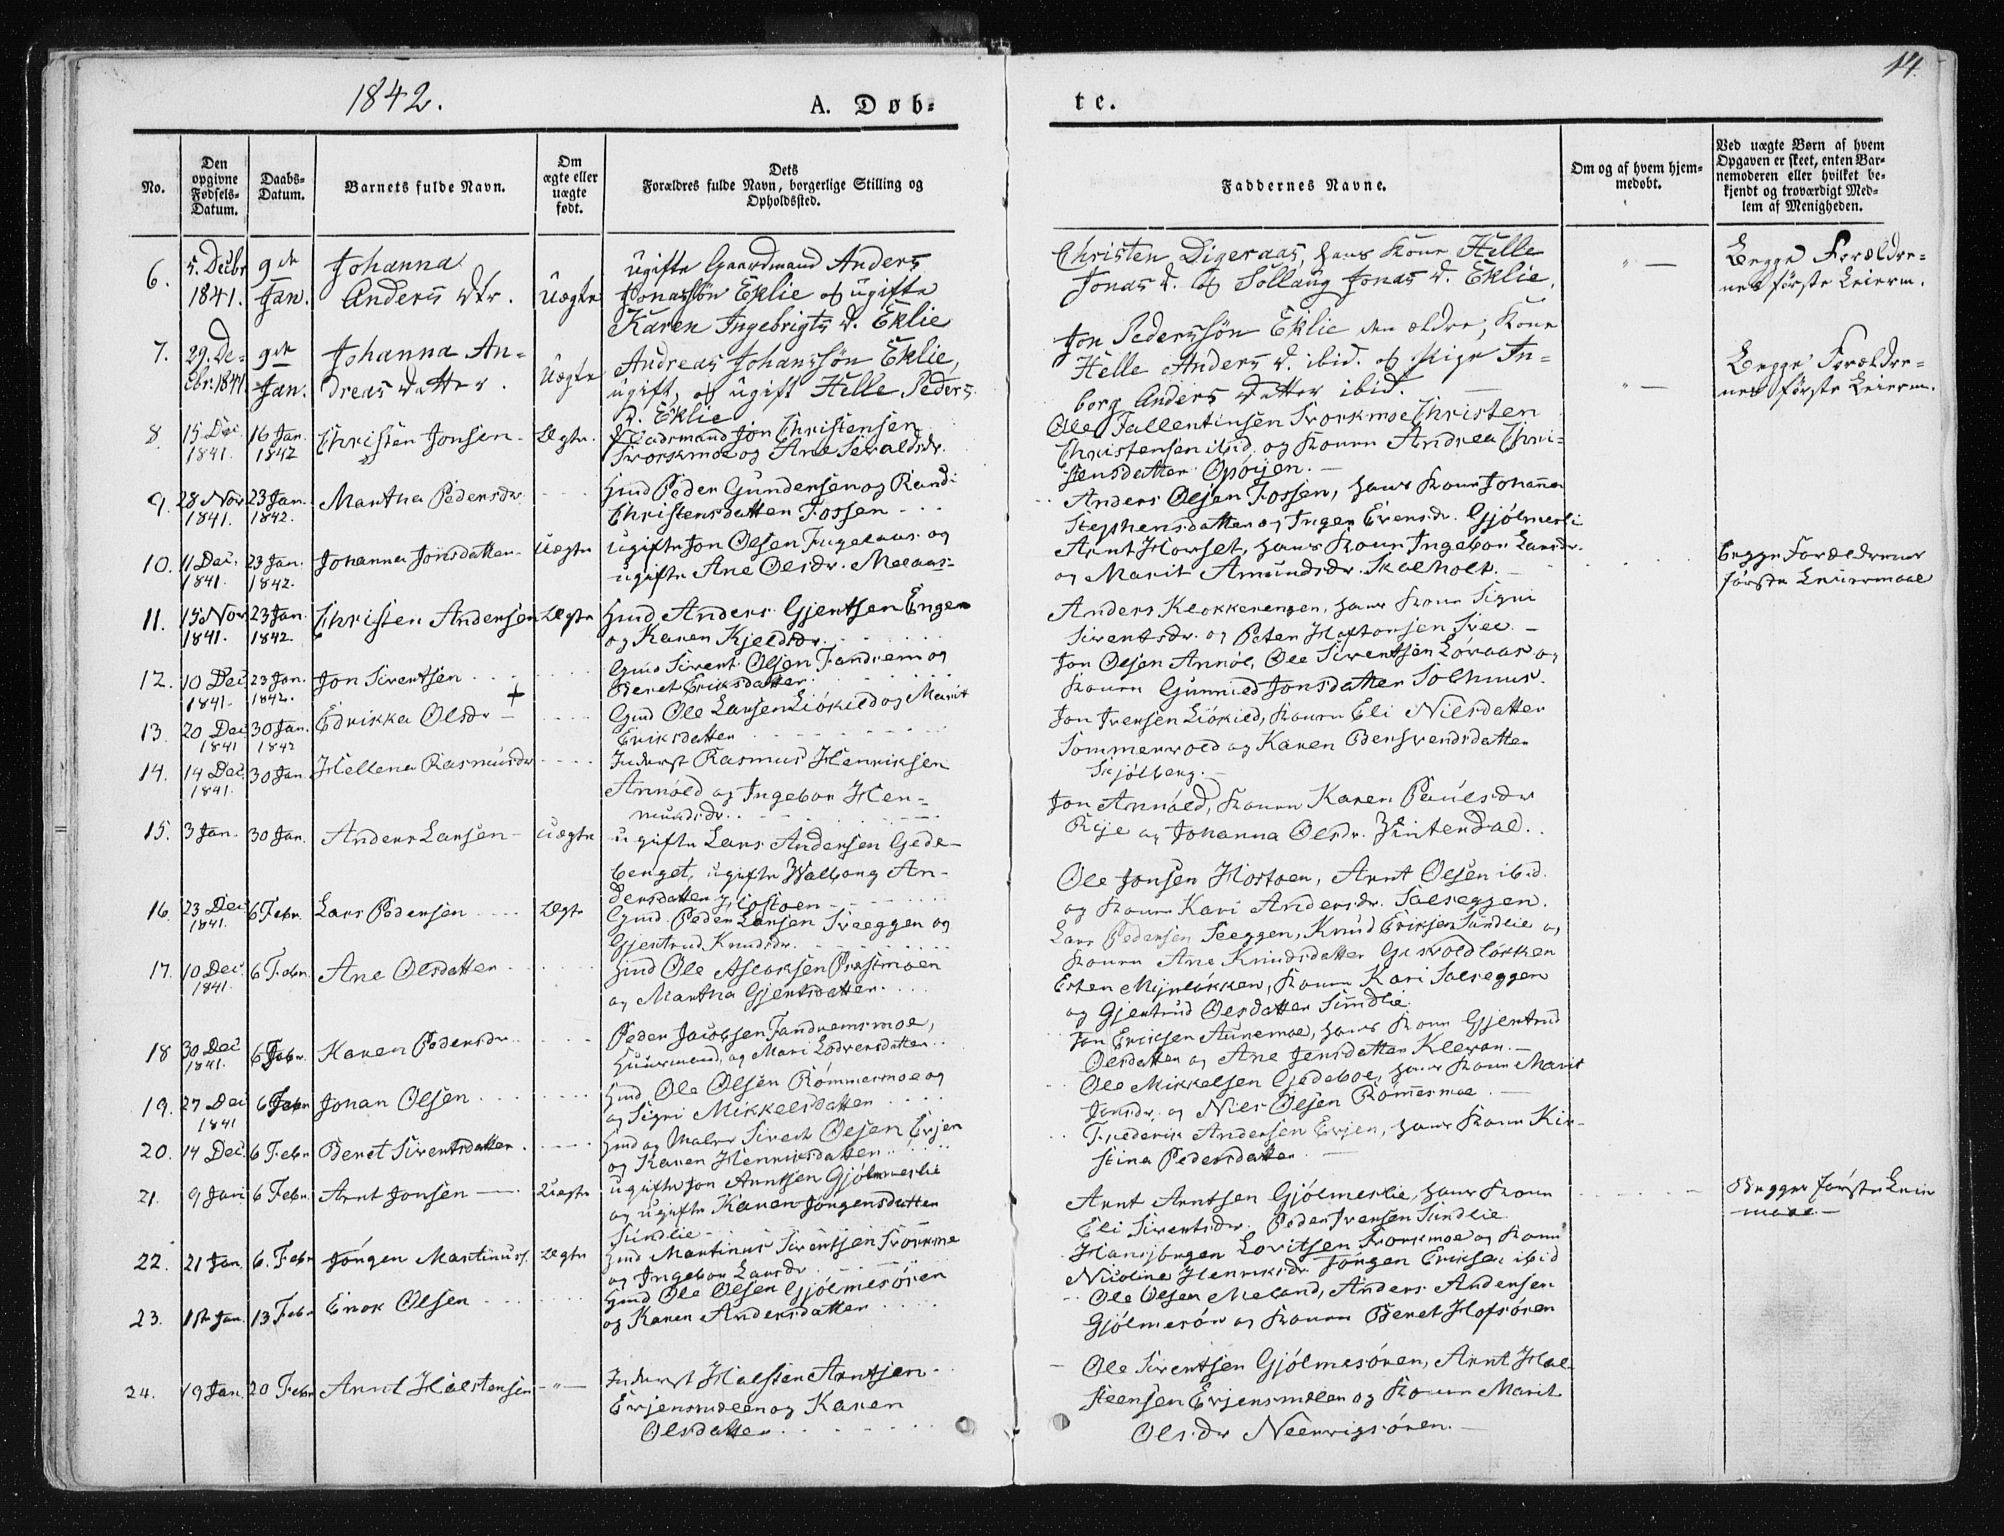 1842.
A. Døb-
te.
14.
No.
Den opgivne Fødsels-Datum.
Daabs-Datum.
Barnets fulde Navn.
Om ægte eller uægte født.
Dets Forældres fulde Navn, borgerlige Stilling og Opholdssted.
Faddernes Navne.
Om og af hvem hjem-medøbt.
Ved uægte Børn af hvem Opgaven er skeet, enten Bar-nemoderen eller hvilket be-kjendt og troværdigt Med-lem af Menigheden.
6. 5. Decbr 1841. 9de Jan. Johanna Anders Dtr. Uægte
ugifte Gaardmand Anders
Jonassøn Eklie og ugifte
Karen Ingebrigts D. Eklie
Christen Digeraas, hans Kone Helle
Jonas D. og Sollaug Jonas D. Eklie.
Begge Forældre-
nes første Leierm.
7. 29. De-cbr. 1841 9de Jan. Johanna An-dreas Datter. Uægte
Andreas Johanssøn Eklie,
ugift, og ugift Helle Peders
D. Eklie
Jon Pederssøn Eklie den ældre, Kone
Helle Anders D. ibid. og Pige In-
borg Anders Datter ibid.
Begge Forældre-
nes første Leierm.
8. 15 Dec. 1841. 16 Jan. 1842 Christen Jonsen Ægte.
Gaardmand Jon Christensen
Svorkmoe og Ane Sivaldsdr.
Ole Fallentinsen Svorkmoe Christen
Christensen ibid. og Konen Andrea Chri-
stensdatter Opøijen.
9. 28 Nov 1841. 23 Jan. 1842. Martha Pedersdr
Gmd Peder Gundersen og Randi
Christensdatter Fossen
Anders Olsen Fossen, hans Kone Johanna
Stephensdatter og Inger Evensdr. Gjølmesli
10. 11 Dec. 1841. 23 Jan. 1842. Johanna Jonsdatter Uægte
ugifte Jon Olsen Ingelaas og
ugifte Ane Olsdr. Melaas
Arnt Horset, hans Kone Ingebor Larsdr.
og Marit Amundsdr. Skolholt.
begge Forældrenes
første Leiermaal
11. 15 Nov 1841. 23 Jan. 1842. Christen Andersen Ægte
Gmd Anders Gjertsen Engen
og Karen Kjeldsdr.
Anders Klokkerengen, hans Kone Sigri
Siventsdr. og Peter Haftorsen Svee
12. 10 Dec 1841. 23 Jan. 1842. Jon Siventsen
Gmd Sivent Olsen Fandrem og
Beret Eriksdatter
Jon Olsen Annøl, Ole Siventsen Løraas og
Konen Gunnild Jonsdatter Solhuus.
13. 20 Dec 1841 30 Jan. 1842 Edrikka Olsdr +
Gmd Ole Larsen Liøkild og Marit
Eriksdatter
Jon Iversen Liøkild, Konen Eli Nilsdatter
Sommervold og Karen Bersvendsdatter
Skjølberg.
14. 14 Dec 1841. 30 Jan. Hellena Rasmusdr
Inderst Rasmus Henriksen
Annøld og Ingebor Hen-
Jon Annøld, Konen Karen Paulsdr
Rije og Johanna Olsdr. Vinterdal.
15. 3 Jan. 30 Jan. Anders Larsen Uægte
ugifte Lars Andersen Gede-
berget, ugifte Walborg An-
dersdatter Hostoen
Ole Jonsen Hostoen, Arnt Olsen ibid.
og Konen Kari Andersdr. Solseggen.
16. 23 Dec 1841. 6 Febr. Lars Pedersen Ægte
Gmd. Peder Larsen Sveeggen og
Gjertrud Knudsdr.
Lars Pedersen Seeggen, Knud Eriksen Sundlie og
Konen Ane Knudsdatter
17. 10 Dec. 1841. 6 Febr. Ane Olsdatter
Gmd Ole Aslaksen Præstmoen
og Martha Gjertsdatter.
Esten Mijrløkken, Konen Kari Solseggen
og Gjertrud Olsdatter Sundlie
18 30 Dec 1841. 6 Febr. Karen Pedersdr
Peder Jacobsen Fandremsmoe,
Huusmand, og Mari Lodversdatter
Jon Ericksen Aunemoe, hans Kone Gjertrud
Olsdatter og Ane Jensdatter Klevan.
19. 27 Dec 1841 6 Febr Johan Olsen
Gmd Ole Olsen Rømmermoe og
og Sigri Mikkelsdatter
Ole Mikkelsen Gjedeboe, hans Kone Marit
Jonsdr. og Niels Olsen Rømmesmoe
20. 14 Dec. 6 Febr Beret Siventsdatter.
Gmd og Maler Sivert Olsen Evjen
og Karen Henriksdatter
Frederik Andersen Evjen, hans Kone Kir-
stina Pedersdatter
21. 9 Jan 6 Febr. Arnt Jonsen Uægte
ugifte Jon Arntsen Gjølmeslie
og ugifte Karen Jørgensdatter
Sundlie
Arnt Arntsen Gjølmeslie, hans Kone
Eli Siventsdr. Peder Iversen Sundlie
Begges første Leier
maal
22. 21 Jan. 6. Febr Jørgen Martinuss. Ægte
Gmd Martinus Siventsen Svorkmo
og Ingebor Larsdr
Hansjørgen Loritsen Svorkmoe og Kone
Nicoline Henriksdr. Jørgen Eriksen ibid
23. 13 Febr Enok Olsen
Gmd Ole Olsen Gjølmesøren
og Karen Andersdatter
Ole Olsen Meland, Anders Andersen
Gjølmesør og Konen Beret Hofsøren
24. 19 Jan. 20 Febr Arnt Halstensen -"-
Inderst Halsten Arntsen
Evjensmelen og Karen
Olsdatter
Ole Siventsen Gjølmesøren, Arnt Hal-
steensen Evjensmelen og Konen Marit
Olsdr Neervigsøren.